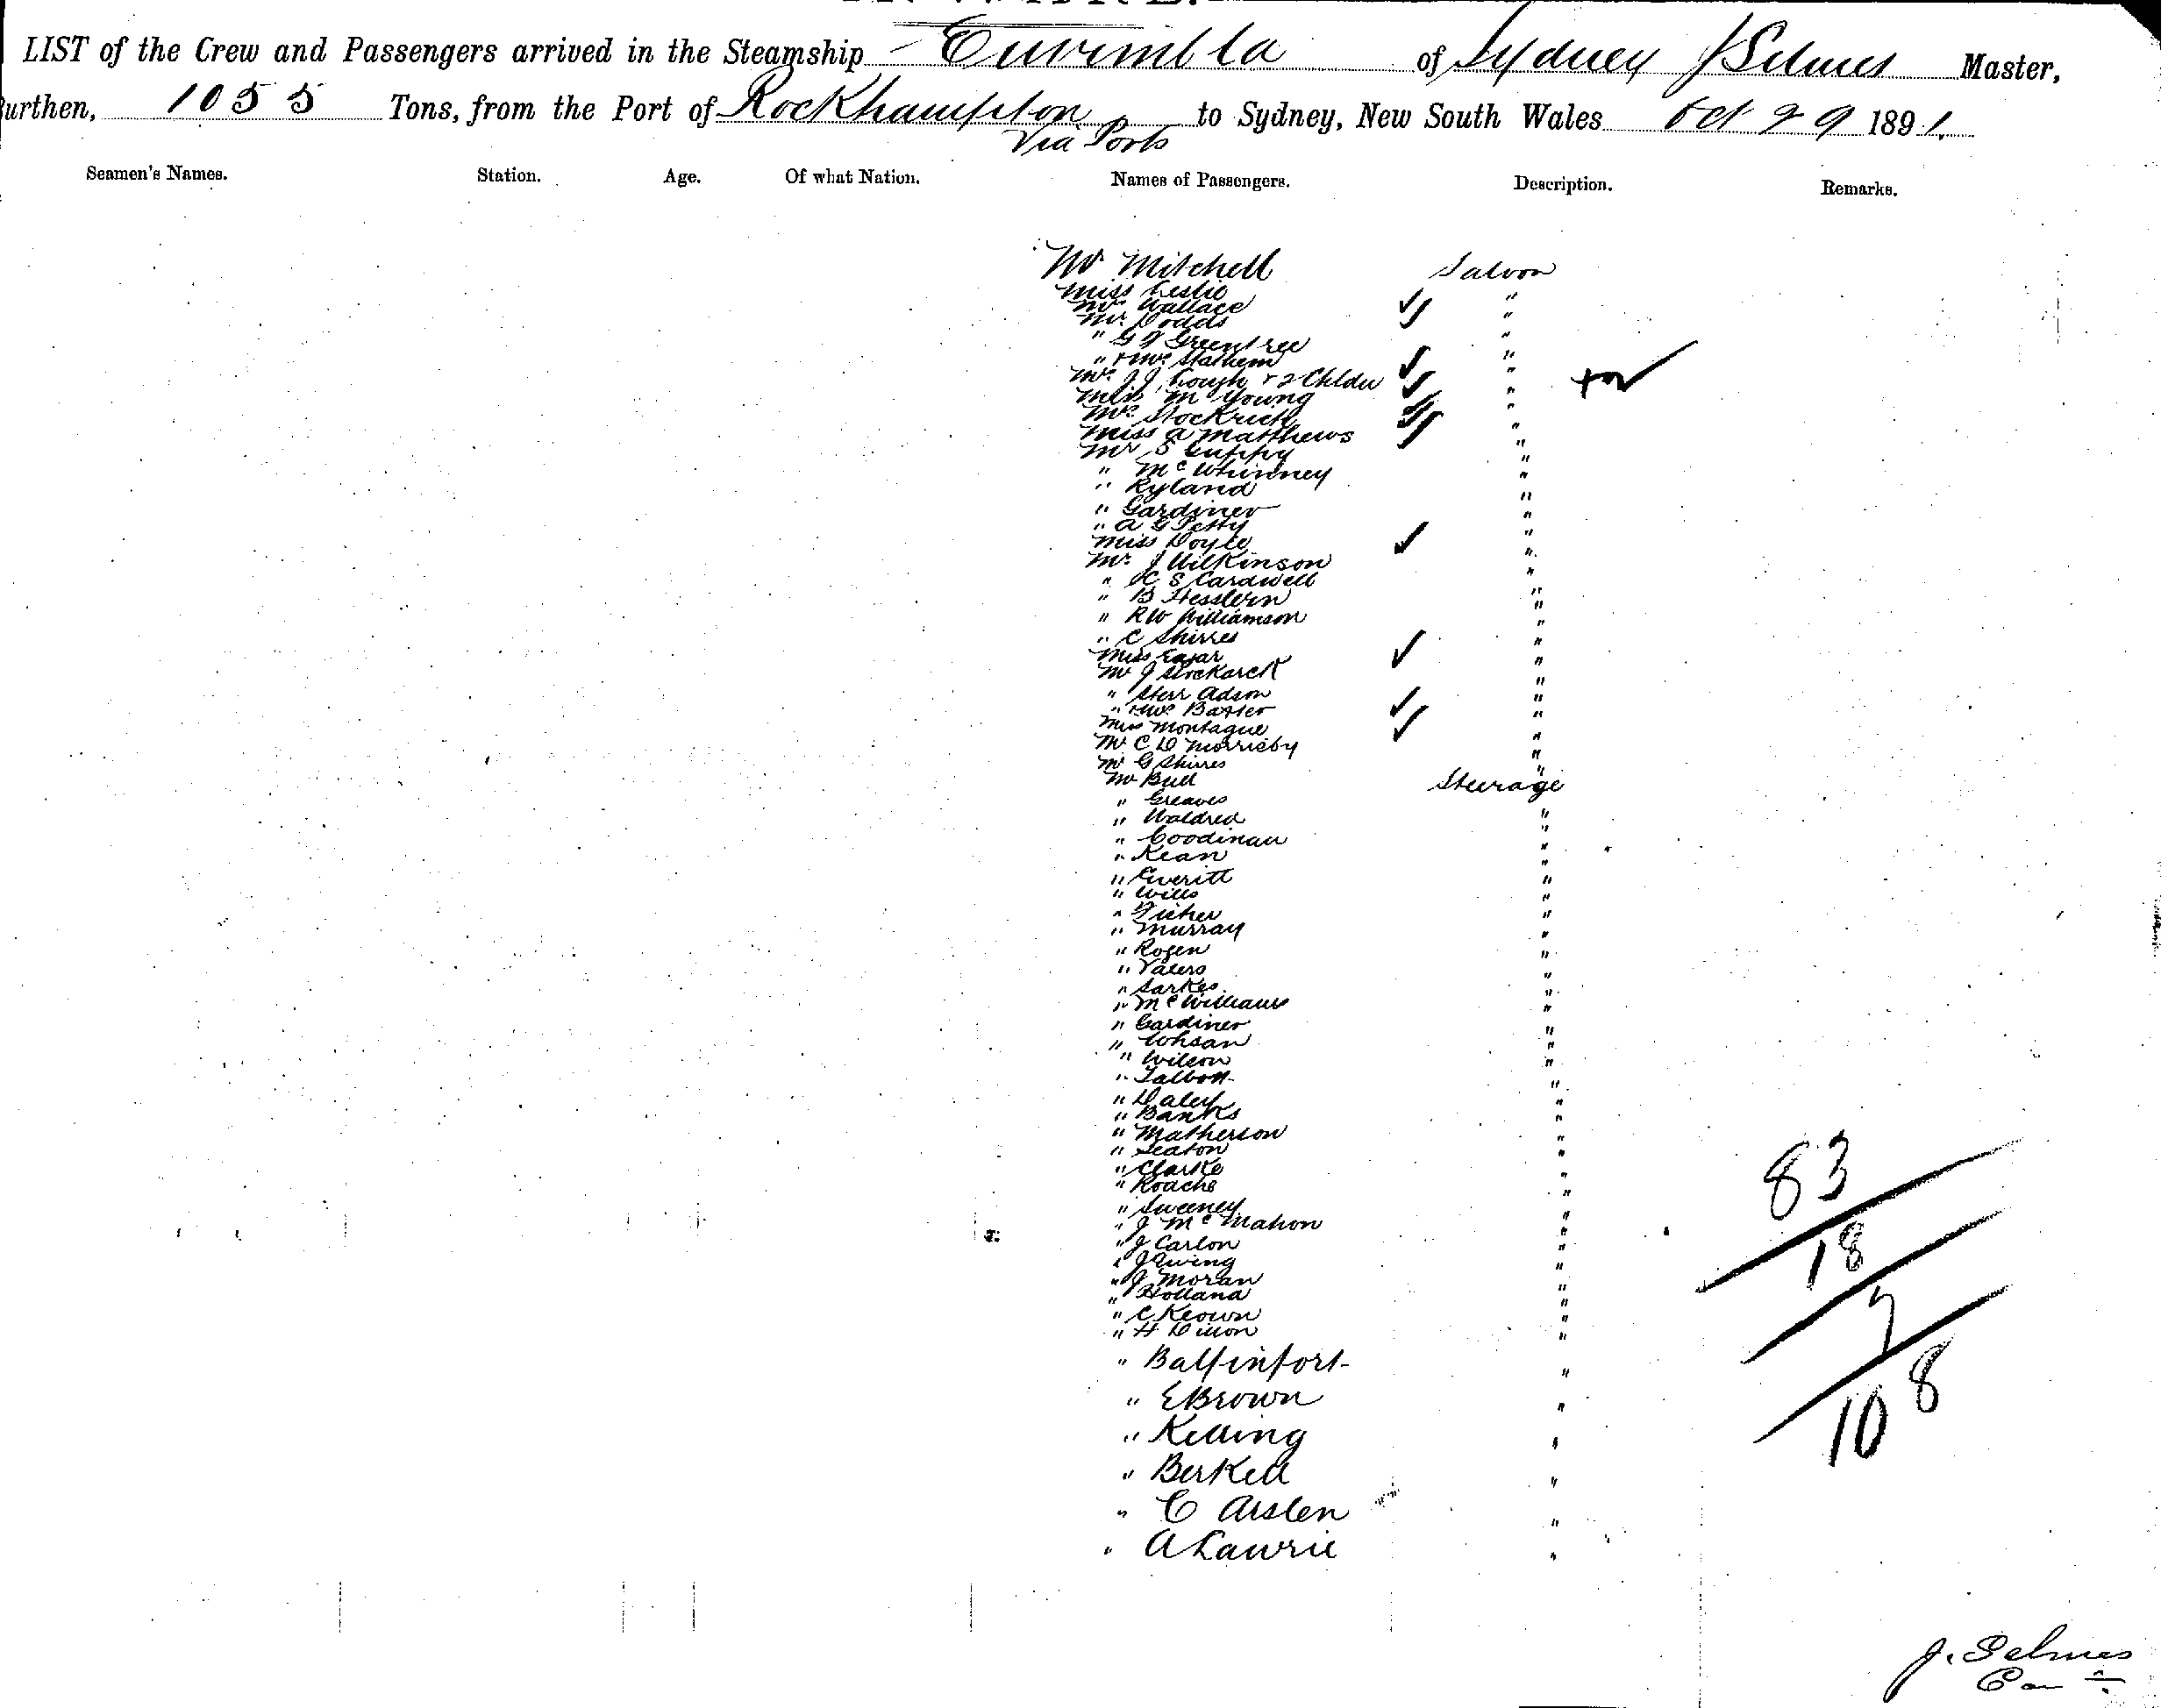 LIST of the Crew and Passengers arrived in the Steamship Eurimbla of Sydney J Selmes Master,
urthen, 1055 Tons, from the Port of Rockhampton to Sydney, New South Wales Oct 29 1891.
Via Ports
Seamen's Names. Station. Age. Of what Nation. Names of Passengers. Description. Remarks.
Mr Mitchell Saloon
Miss Leslie "
Mr Wallace "
Mr. Dodds "
" G F Greentree "
" & Mrs "
Mrs J J Gough & 2 Childn "
Miss M Young "
Mrs "
Miss A Matthews "
Mr S Guppy "
" McWhinney "
" Ryland "
" Gardiner "
" A G Petty "
Miss Doyle "
Mr. J Wilkinson "
" H S Cardwell "
" B "
" R W Williamson "
" C Shirres "
Miss "
Mr J "
" Herr "
" & Mrs Baxter "
Miss Montague "
Mr C D Morrisby "
Mr G Shirres "
Mr Bull Steerage
" Greaves "
" Waldred "
" "
" Kean "
" Everitt "
" Wills "
" Fisher "
" Murray "
" Rogen "
" "
" Sarkes "
" McWilliams "
" Gardiner "
" "
" Wilson "
" Talbot "
" Daley "
" Banks "
" Matherson "
" Seaton "
" Clarke "
" Roache "
" Sweeney "
" J McMahon "
" J Carlon "
" J Ewing "
" J Moran "
" Holland "
" C Keown "
" H Dillon "
" "
" E Brown "
" Kelling "
" "
" C "
" A Lawrie "
83
18
7
108
J. Selmes